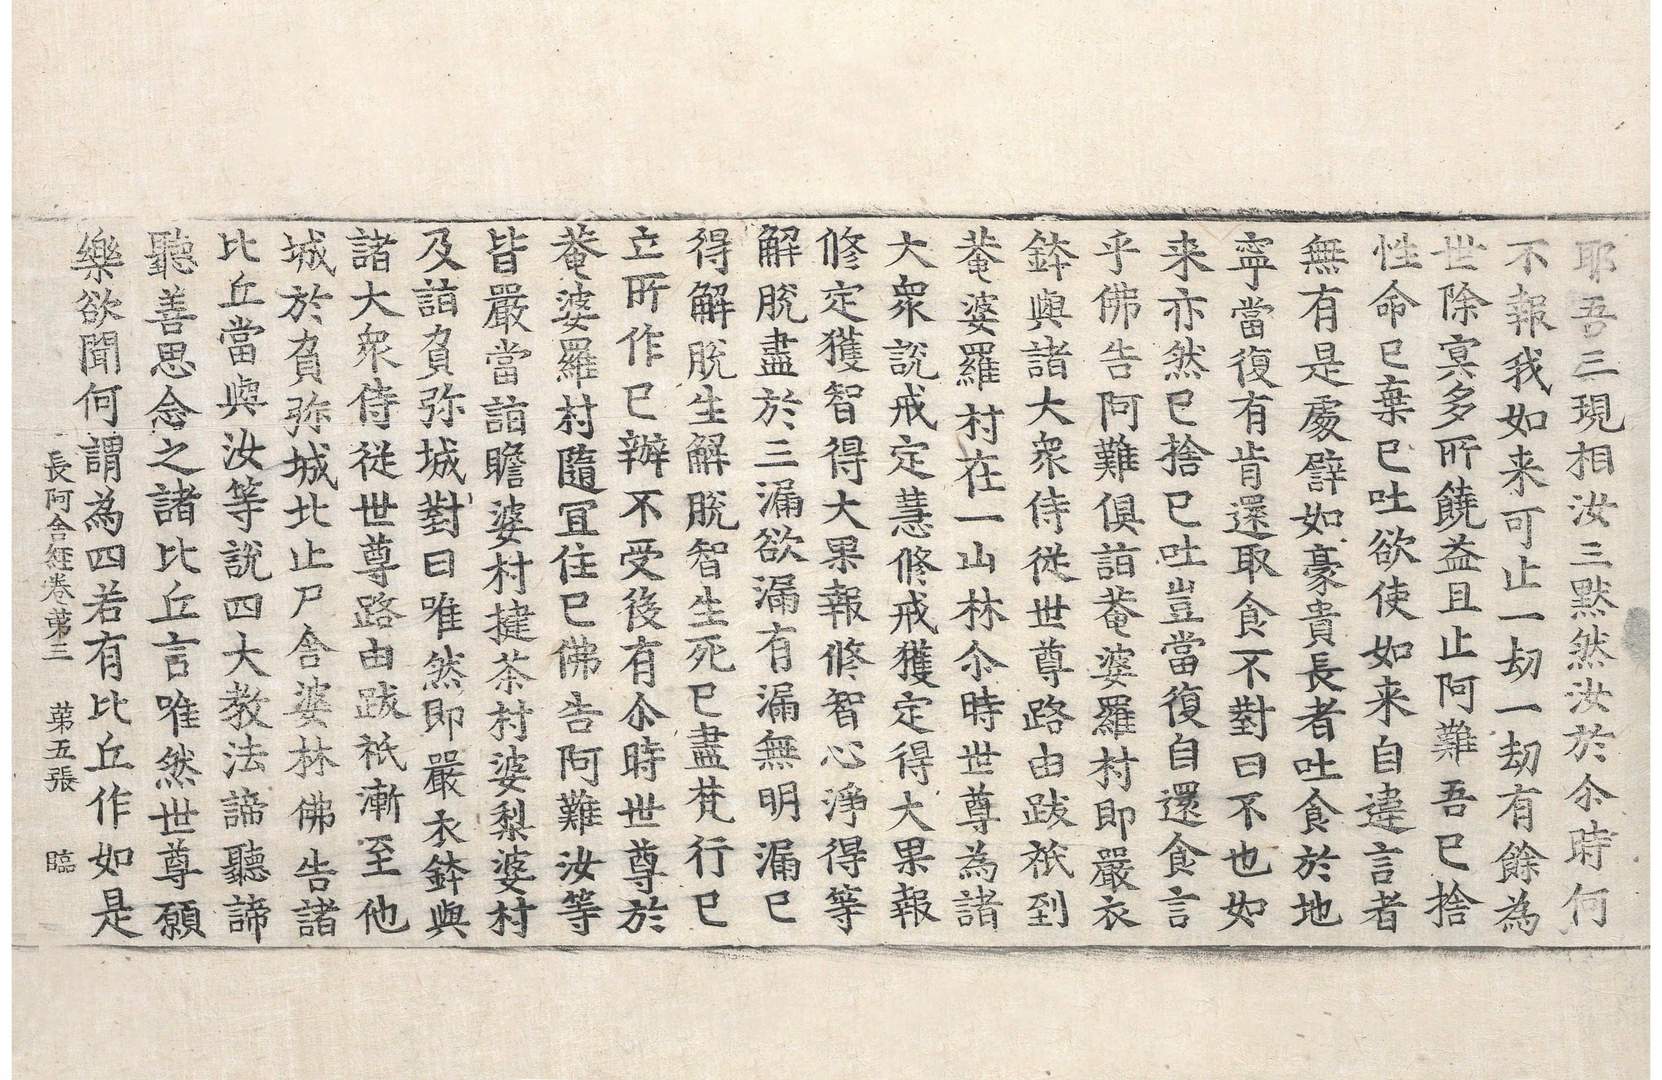 耶吾三現相汝三黙然汝於尒時何
不報我如来可止一劫一劫有餘為
世除冥多所饒益且止阿難吾已捨
性命已棄已吐欲使如来自違言者
無有是處譬如豪貴長者吐食於地
寧當復有肯還取食不對曰不也如
来亦然已捨已吐豈當復自還食言
乎佛告阿難俱詣菴婆羅村即嚴衣
鉢與諸大衆侍従世尊路由跋祇到
菴婆羅村在一山林尒時世尊為諸
大衆說戒定慧修戒獲定得大果報
修定獲智得大果報修智心淨得等
解脫盡於三漏欲漏有漏無明漏已
得解脫生解脫智生死已盡梵行已
立所作已辦不受後有尒時世尊於
菴婆羅村隨宜住已佛告阿難汝等
皆嚴當詣瞻婆村揵茶村婆梨婆村
及詣負弥城對曰唯然即嚴衣鉢與
諸大衆侍従世尊路由跋祇漸至他
城於負弥城北止尸舍婆林佛告諸
比丘當與汝等說四大教法諦聽諦
聽善思念之諸比丘言唯然世尊願
樂欲聞何謂為四若有比丘作如是
長阿含経卷苐三　苐五張　臨